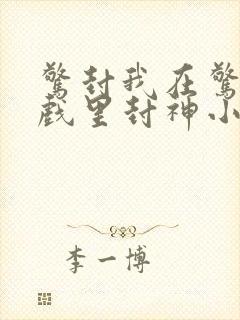 驚封我在驚
戲里封神小
李一博